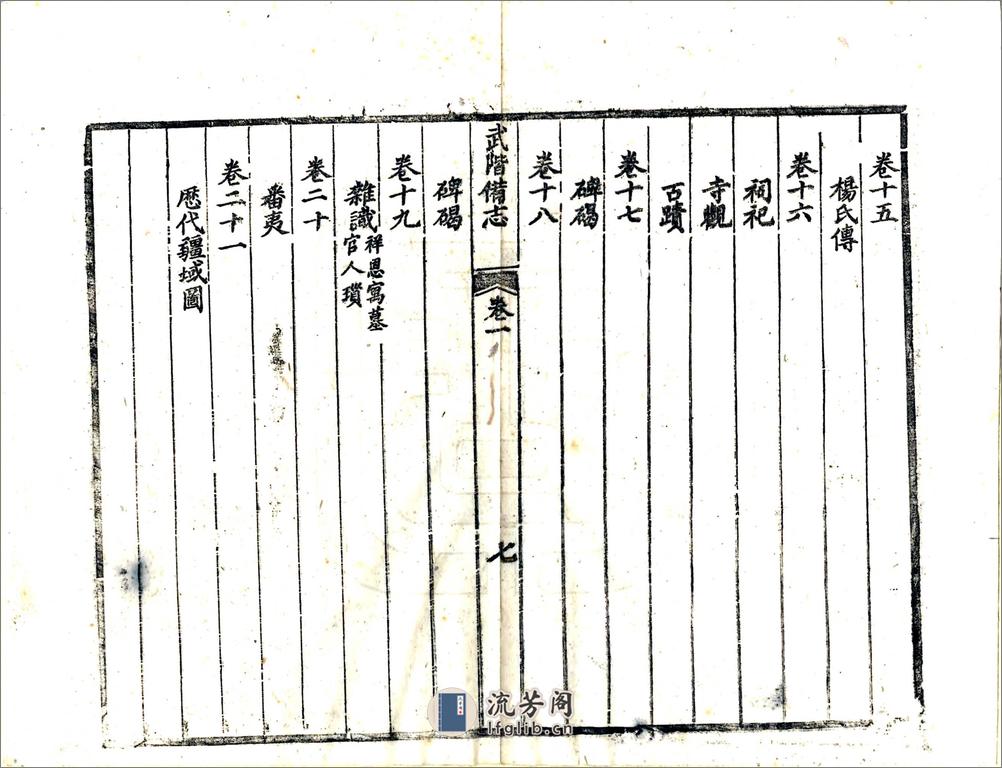 卷十五
楊氏傳
卷十六
祠祀
寺觀
古蹟
卷十七
碑碣
卷十八
武階備志
卷一
七
碑碣
卷十九
雜識
祥恩寓墓
官人瑣
卷二十
番夷
卷二十一
歷代疆域圖
流芳阁
lfglib.cn